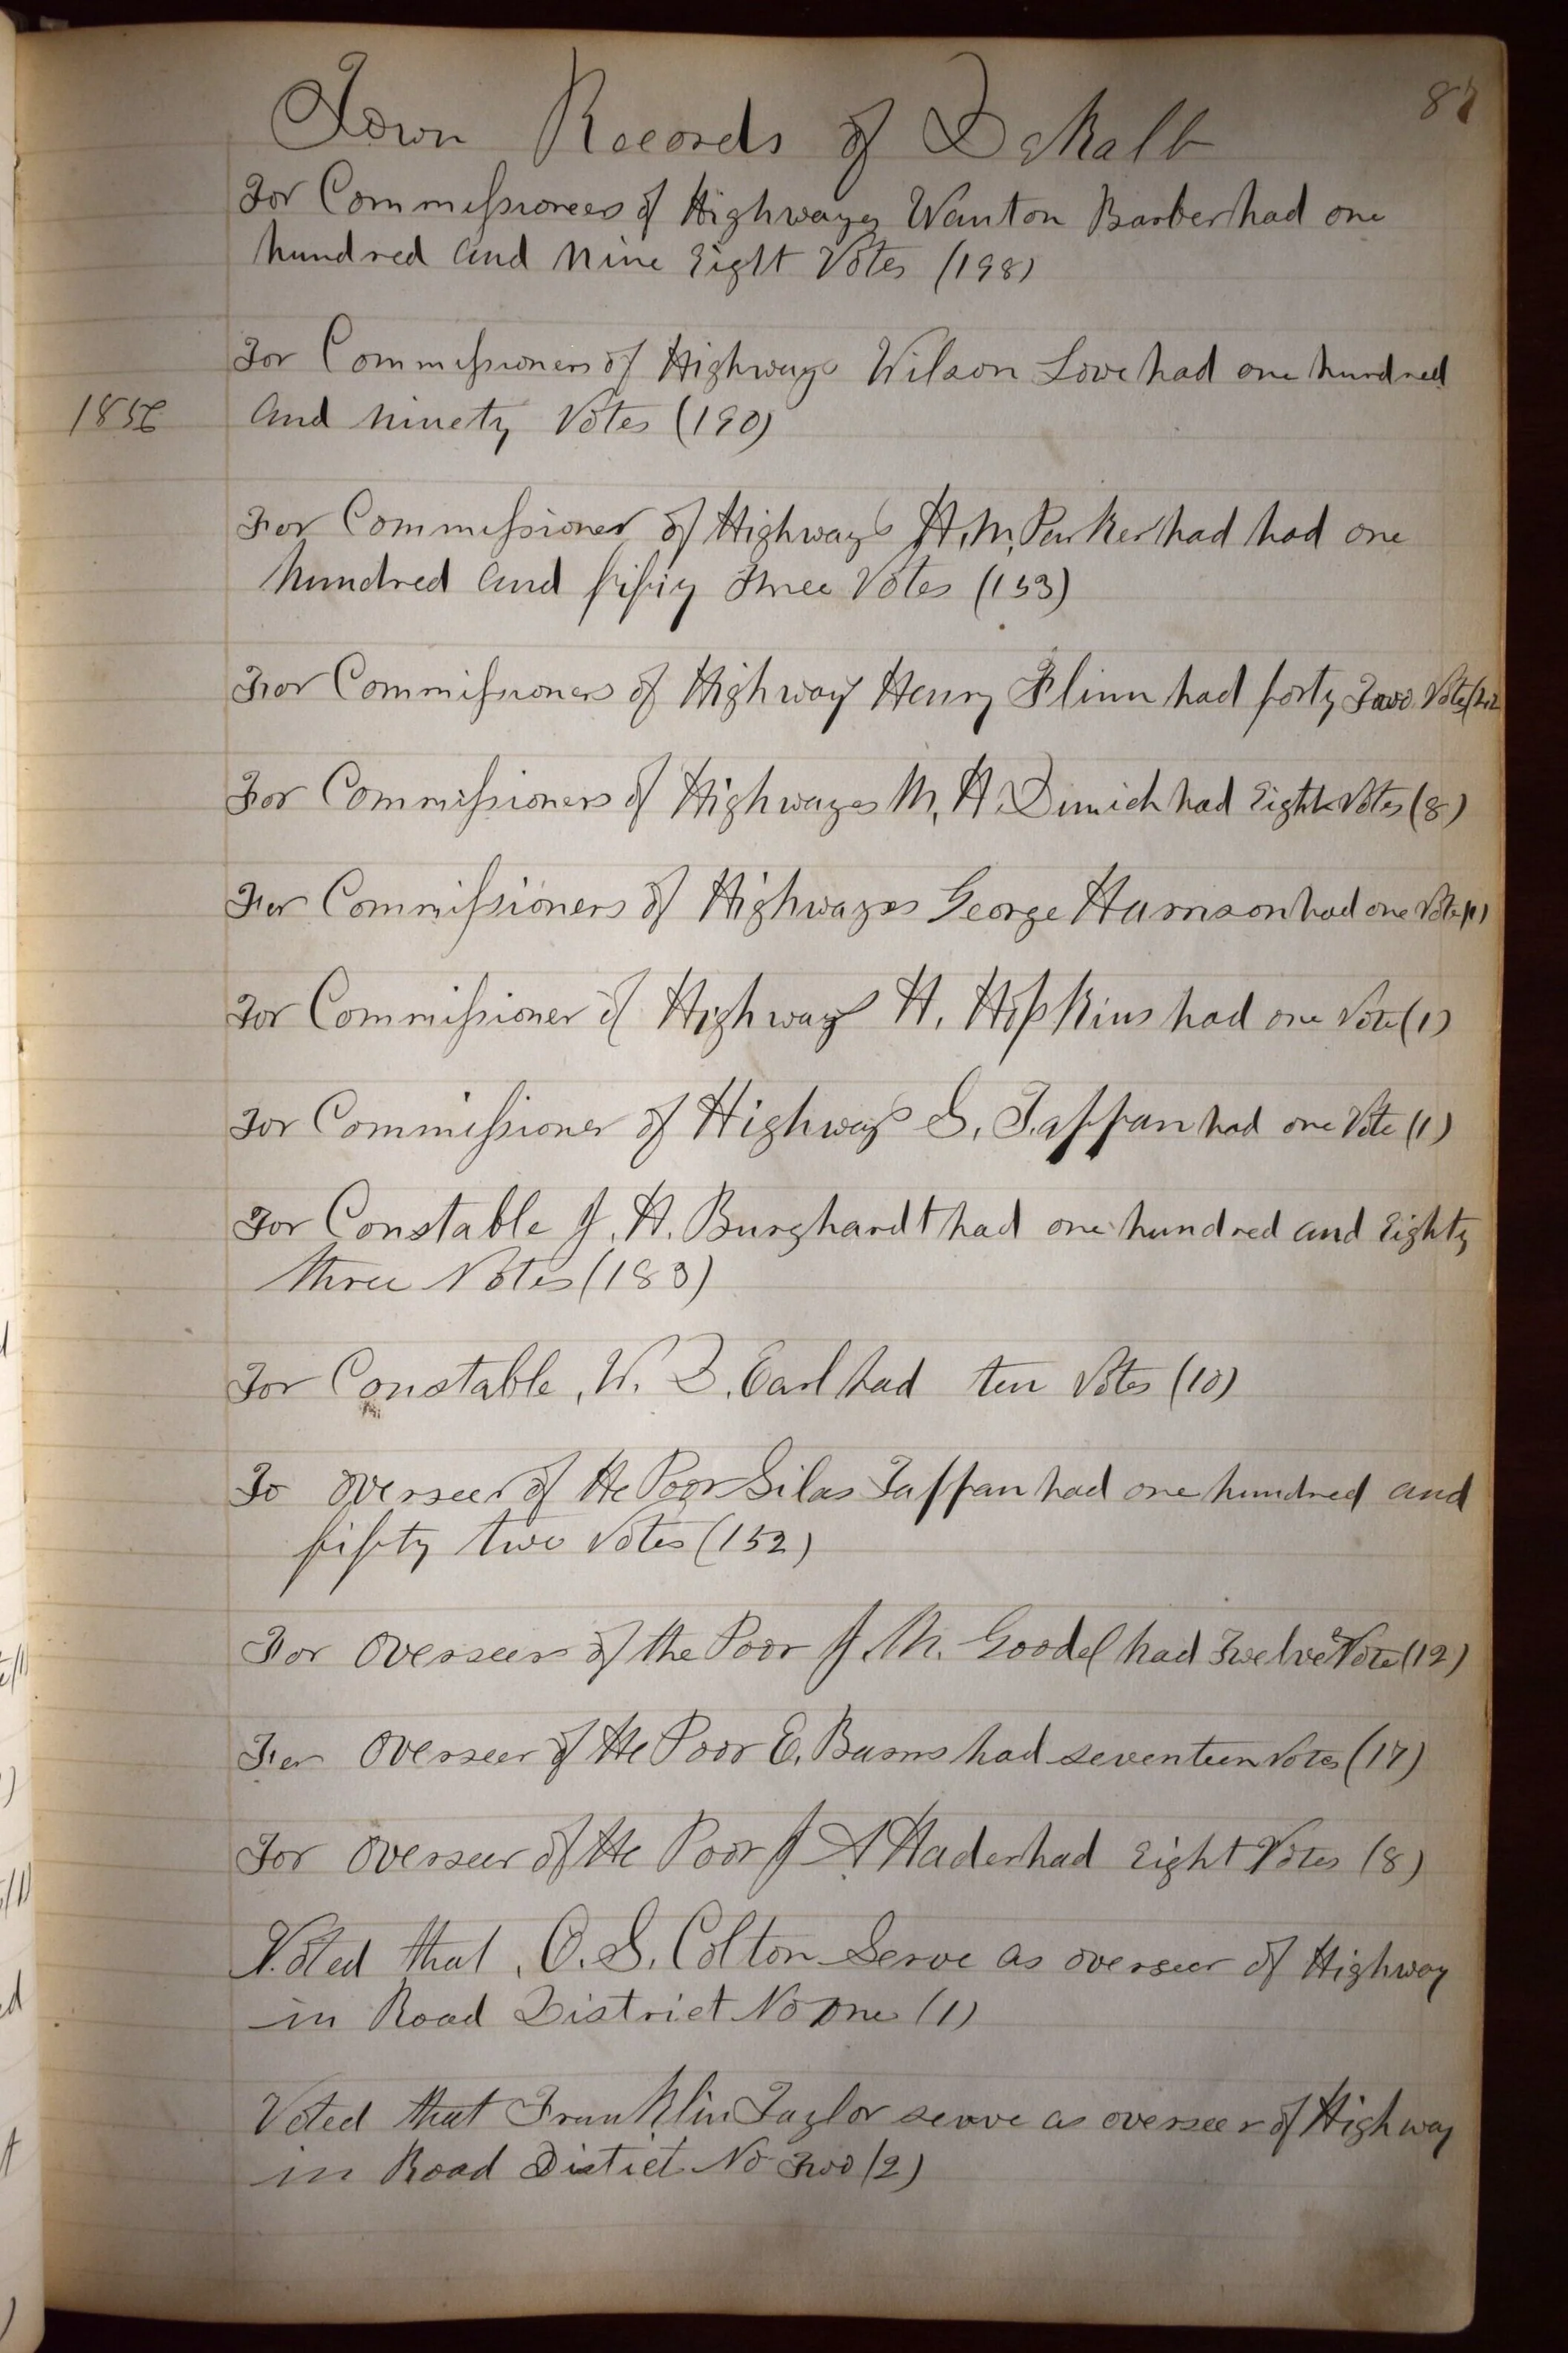 87
Town Records of DeKalb
For Commissioners of Highways Wanton Barber had one
hundred and Nine Eight Votes (198)
For Commissioners of Highways Wilson Love had one hundred
1856 and ninety Votes (190)
For Commissioner of Highways H. M. Parker had had one
hundred and fifty Three Votes (153)
For Commissioners of Highway Henry Flinn had forty Two Votes (42
For Commissioners of Highways M. H. Dimich had Eight Votes (8)
For Commissioners of Highways George Harrison had one Vote (1)
For Commissioner of Highways H. Hopkins had one Vote (1)
For Commissioner of Highways S. Tappan had one Vote (1)
For Constable J. H. Burghardt had one hundred and Eighty
three Votes (183)
For Constable, W. D. Earl had ten Votes (10)
Fo overseer of the Poor Silas Tappan had one hundred and
fifty two Votes (152)
For Overseer of the Poor J. M. Goodel had Twelve Vote (12)
For Overseer of the Poor E. Barns had seventeen Votes (17)
For Overseer of the Poor J A Hader had Eight Votes (8)
Voted that, O. S. Colton Serve as overseer of Highway
in Road District No one (1)
Voted that Franklin Taylor serve as overseer of Highway
in Road Distict No Two (2)